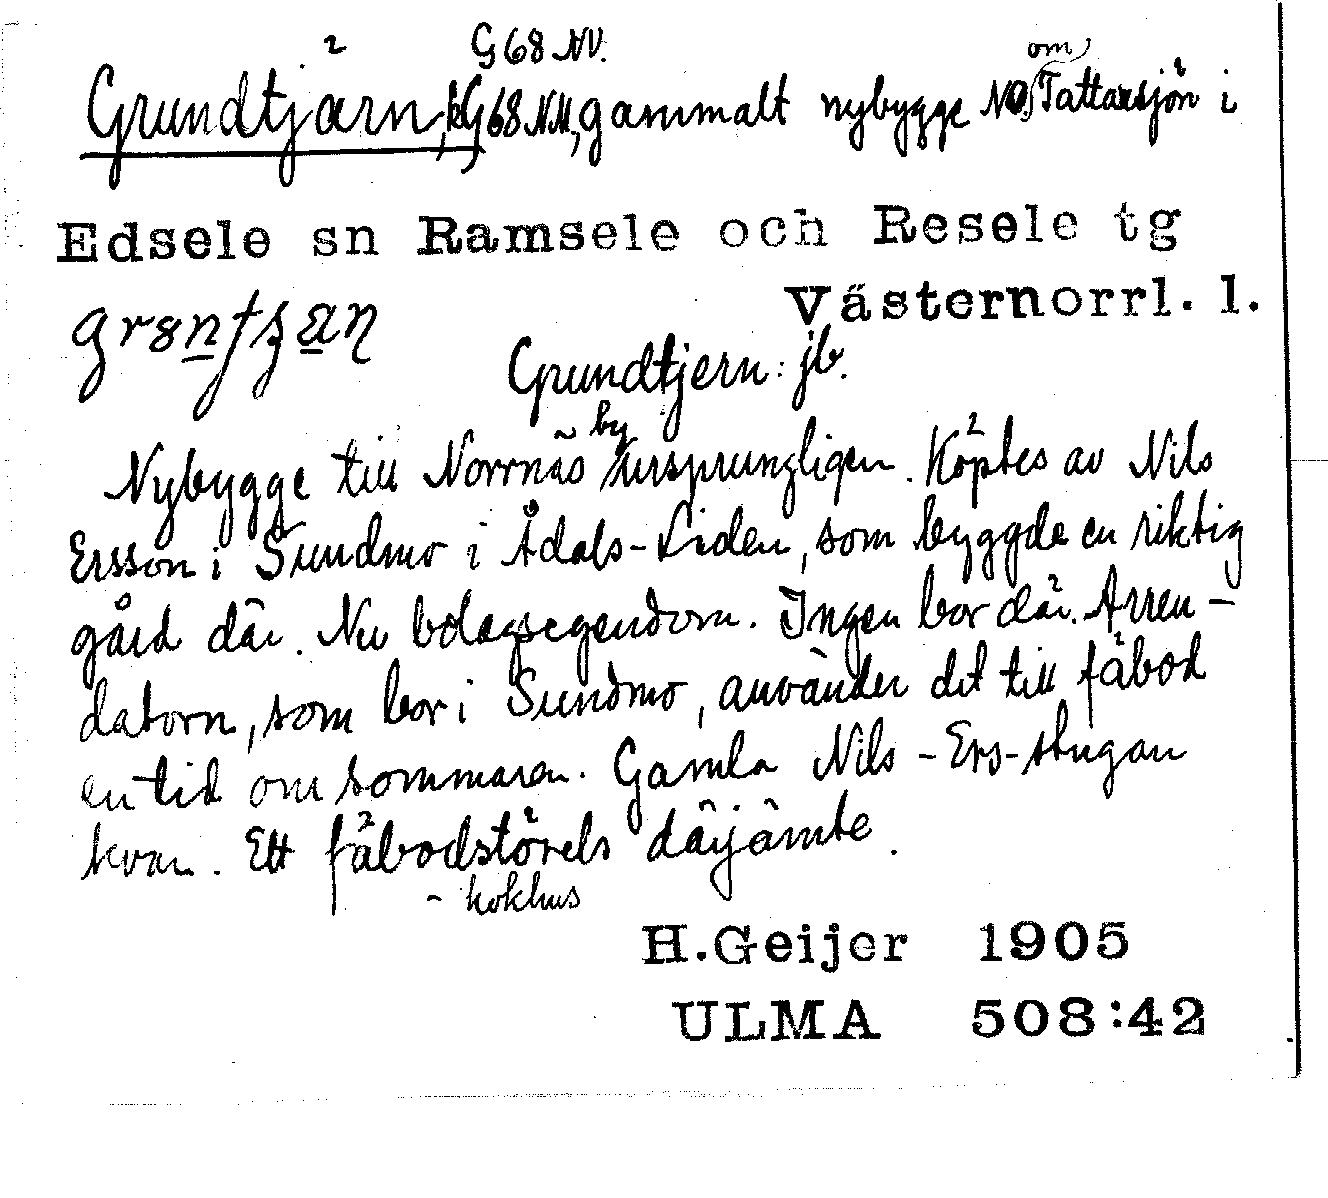 G 68 NV.
Grundtjärn, G 68 NV, gammalt nybygge NO om Tattarsjön i
Edsele sn Ramsele och Resele tg
Västernorrl. l.
Grundtjern: jb.
Nybygge till Norrnäs by ursprungligen. Köptes av Nils
Ersson i Sundmo i Ådals-Liden, som byggde en riktig
gård där. Nu bolagsegendom. Ingen bor där. Arren-
datorn, som bor i Sundmo, använder det till fäbod
en tid om sommaren. Gamla Nils-Ers-stugan
kvar. Ett fäbodstörels därjämte.
- kokhus
H.Geijer 1905
ULMA 508:42